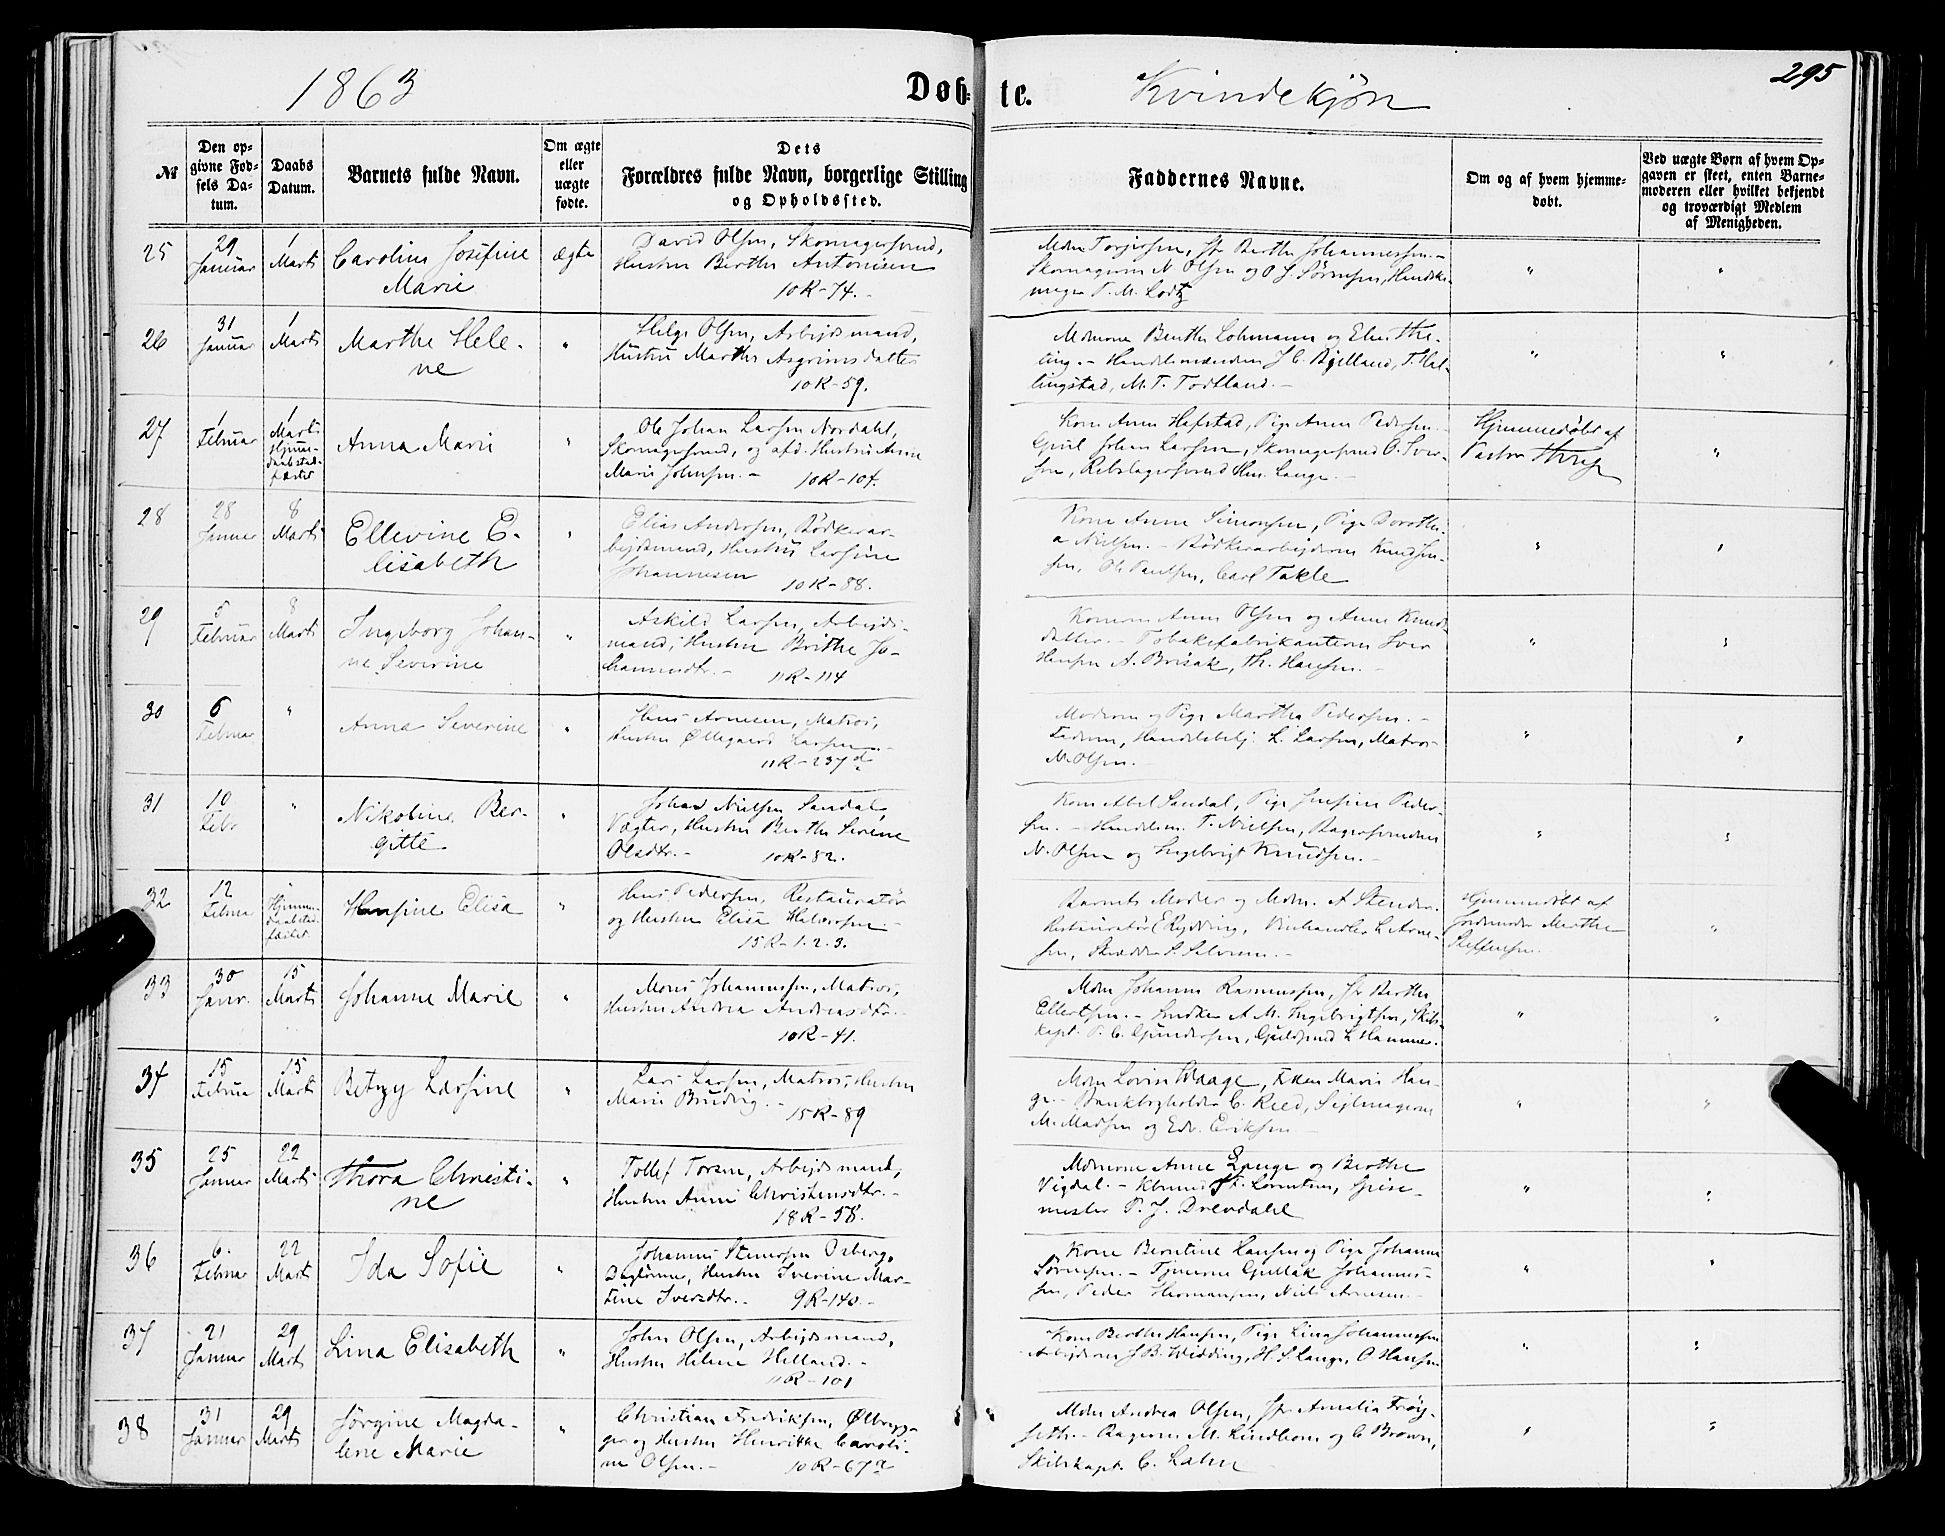 1863
Døb-te.
Kvindekjøn
295
№
Den op-
givne Fød-
sels Da-
tum.
Daabs
Datum.
Barnets fulde Navn.
Om ægte
eller
uægte
fødte.
Dets
Forældres fulde Navn, borgerlige Stilling
og Opholdssted.
Faddernes Navne.
Om og af hvem hjemme-
døbt.
Ved uægte Børn af hvem Op-
gaven er skeet, enten Barne-
moderen eller hvilket bekjendt
og troværdigt Medlem
af Menigheden.
25
29
Januar
1
Marts
Caroline Josefine
Marie
ægte
David Olsen, Skomagersvend,
Hustru Berthe Antonisen
10R-74.
Mdm Torjersen, Berthe Johannessen.-
Skomagerne N. Olsen og O. J. Sørensen, Handske-
mager P. M. Lodtz
26
31
Januar
1
Marts
Marthe Hele-
ne
"
Helge Olsen, Arbeidsmand,
Hustru Marthe Asgrimsdatter
10R-59.
Mdmerne Berthe Lohmann og Elen The-
ting.- Handelsmændene J. C. Bjelland, T. Hal-
lingstad, M. T. Todtland.-
27
1
Februar
1
Marts
Hjemme-
daab stad-
fæstet
Anna Marie
"
Ole Johan Larsen Nordahl,
Skomagersvend, og afd. Hustru Anne
Marie Johnsen.-
10R-104.
Kone Anne Hafstad, Pige Anne Pedersen.-
Johan Larsen, Skomagersvend O. Iver-
sen, Rebslagersvend Lange.-
Hjemmedøbt af
Pastor
28
28
Januar
8
Marts
Ellevine E-
lisabeth
"
Elias Andersen, Bødkerar-
beidsmand, Hustru Larsine
Johannesen
10R-88.
Kone Anne Simonsen, Pige Dorothe-
a Nielsen.- Bødkerarbeiderne Knud
sen, Ole Paulsen, Carl Takle
29
5
Februar
8
Marts
Ingeborg Johan-
ne Severine
"
Askild Larsen, Arbeids-
mand, Hustru Brithe Jo-
hannesdtr.-
11R-114
Konerne Anne Olsen og Anne Knuds-
datter.- Tobaksfabrikanterne Iver
Hansen A. Brisak, Th. Hansen.-
30
6
Februar
"
Anna Severine
"
Hans Arnesen, Matros,
Hustru Øllegaard Larsen.-
11R-237d
Moderen og Pige Martha Pedersen.-
Faderen, Handelsbetj. L. Larsen, Matros
N. Olsen.-
31
10
Febr
"
Nikoline Ber-
gitte
"
Johan Nielsen Sandal,
Vægter, Hustru Berthe Serene
Olsdtr.-
10R-82.
Kone Abel Sandal, Pige Josefine Peder-
sen.- Handelsm. T. Nielsen, Bagersvendene
N. Olsen og Ingebrigt Knudsen.-
32
12
Februar
"
Hjemme-
daab stad-
fæstet
Hansine Elisa
"
Hans Pedersen, Restauratør
og Hustru Elisa Halvorsen.-
15R-1.2.3.
Barnets Moder og Mdm. A Stender.
Restauratør E Rydding, Vinhandler L. Arne-
sen, Skrædder S. Salvesen.-
Hjemmedøbt af
Jordmoder Marthe
Steffensen.
33
30
Janr.
15
Marts
Johanne Marie
"
Mons Johannessen, Matros,
Hustru Andrea Andreasdtr.-
10R-41.
Mdm Johanne Rasmussen, Berthe
Ellertsen.- Snedker A. M. Ingebrigtsen, Skibs-
kapt. P. C. Gundersen, Guldsmed L Hammer.
34
15
Februar
15
Marts
Betzy Larsine
"
Lars Larsen, Matros, Hustru
Marie Bruding.-
15R-89
Mdm Lovise Waage, Marie Han-
C. Reed, Seilmagerne
M. Madsen og Edv. Eriksen
35
25
Januar
22
Marts
Thora Christi-
ne
"
Tollef Torsen, Arbeidsmand,
Hustru Anne Christensdtr.-
18R-58.
Mdmerne Anne Lange og Berthe
Vigdal.- Kbmand St. Lorentzen, Spise-
mester P. J. Drevdahl
36
6.
Februar
22
Marts
Ida Sofie
"
Johannes Stenersen Osberg,
Dagleier, Hustru Iverine Mar-
tine Iversdtr.-
9R-140.-
Kone Berntine Hansen og Pige Johanne
Sørensen.- Tjenerne Gullak Johannes-
sen, Peder Thomassen, Niels Arnesen.-
37
21
Januar
29
Marts
Lina Elisabeth
"
John Olsen, Arbeidsmand,
Hustru Helene Helland.-
11R-101
Kone Berthe Hansen, Pige Lina Johannessen
Arbeiderne J. B. Widding, H. S. Lange, O Hansen
38
31
Januar
29
Marts
Jørgine Magda-
lene Marie
"
Christian Fredriksen, Ølbryg-
ger og Hustru Henrikke Caroli-
ne Olsen.-
10R-67a
Mdm Andrea Olsen, Amalia Frøy-
seth.- Bagerne M. Lindbom og C Brown,
Skibskapt. C. Lahn